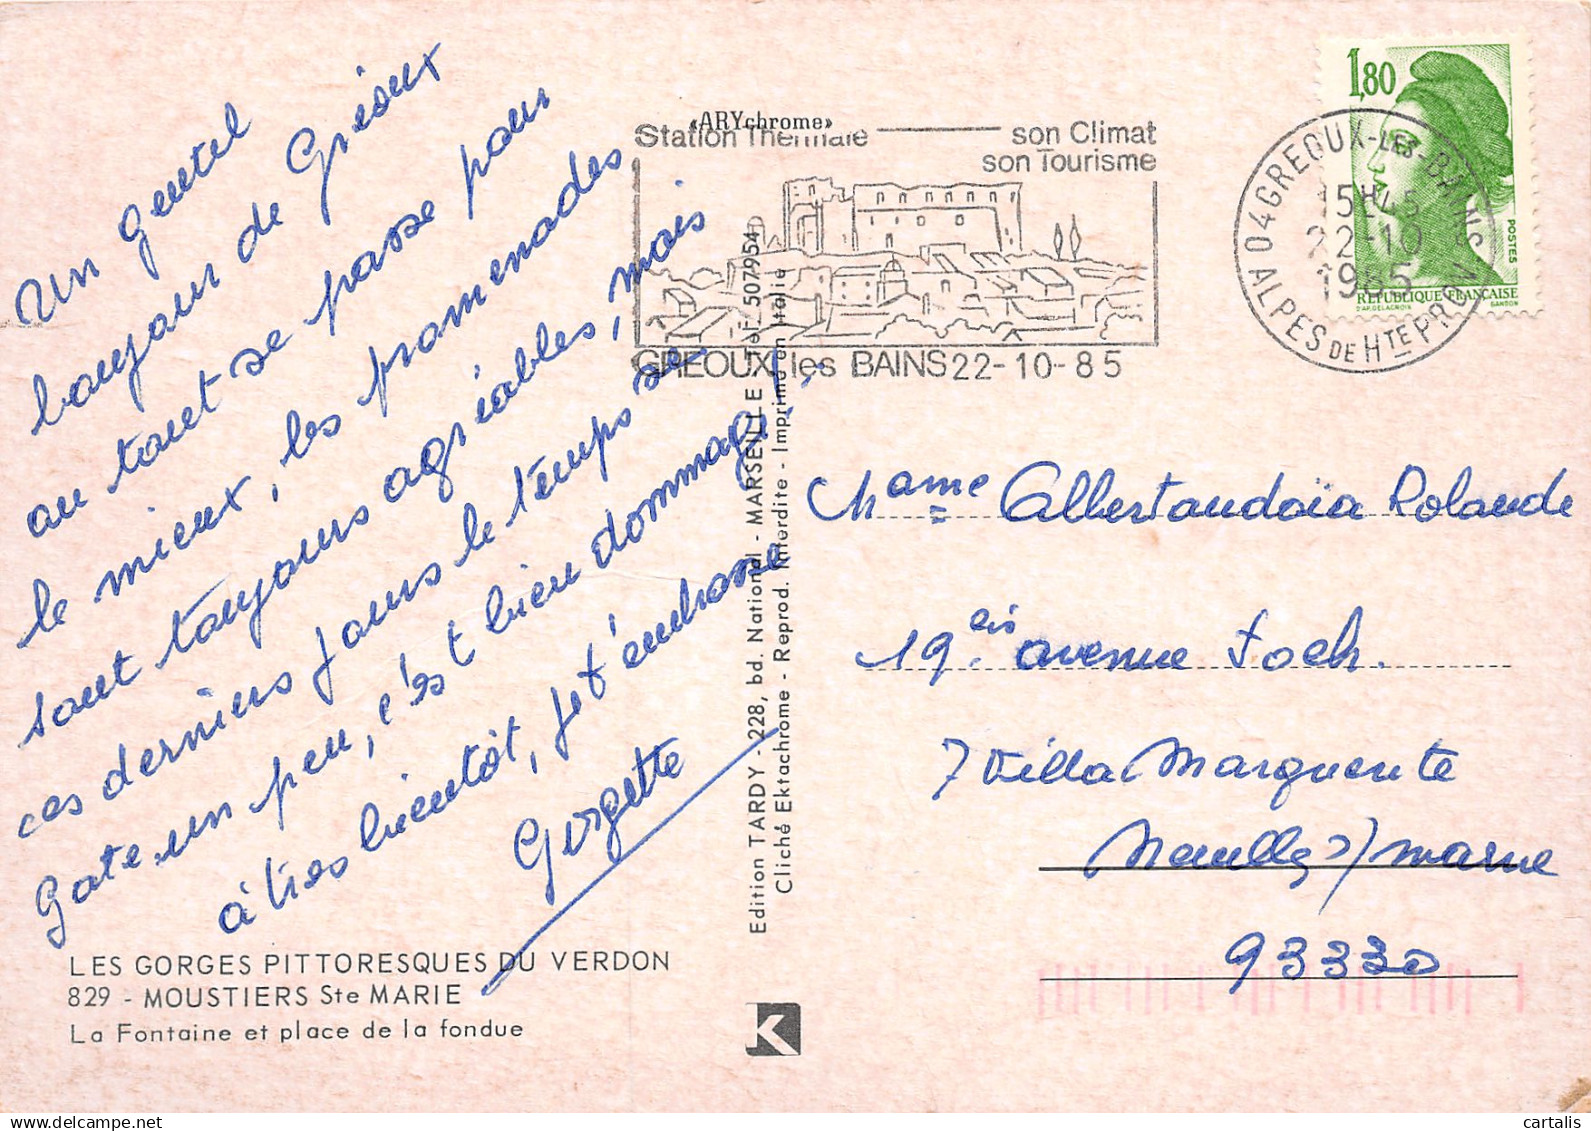 Un gentil
bonjour de Gréoux
au tout se passe pour
le mieux, les promenades
sont toujours agréables, mais
ces derniers jours le temps se
Gate un peu, c'est bien dommage!..
à très bientôt, je t'embrasse
Gorgette
LES GORGES PITTORESQUES DU VERDON
829 - MOUSTIERS Ste MARIE
La Fontaine et place de la fondue
Edition TARDY - 228, bd. National - MARSEILLE - Tél. 507954
Cliché Ektachrome - Reprod. Interdite - Imprimé en Italie
«ARYchrome»
Station Thermale
son Climat
son Tourisme
GREOUX les BAINS 22-10-85
1,80
POSTES
REPUBLIQUE FRANÇAISE
D'AP. DELACROIX GANDON
04 GREOUX-LES-BAINS
15H45
22-10
1985
ALPES DE HTE PROV
Mame Albertandoïa Rolande
19 bis avenue Foch.
7 Villa Marguerite
Neuilly s/marne
93330
K
cartalis